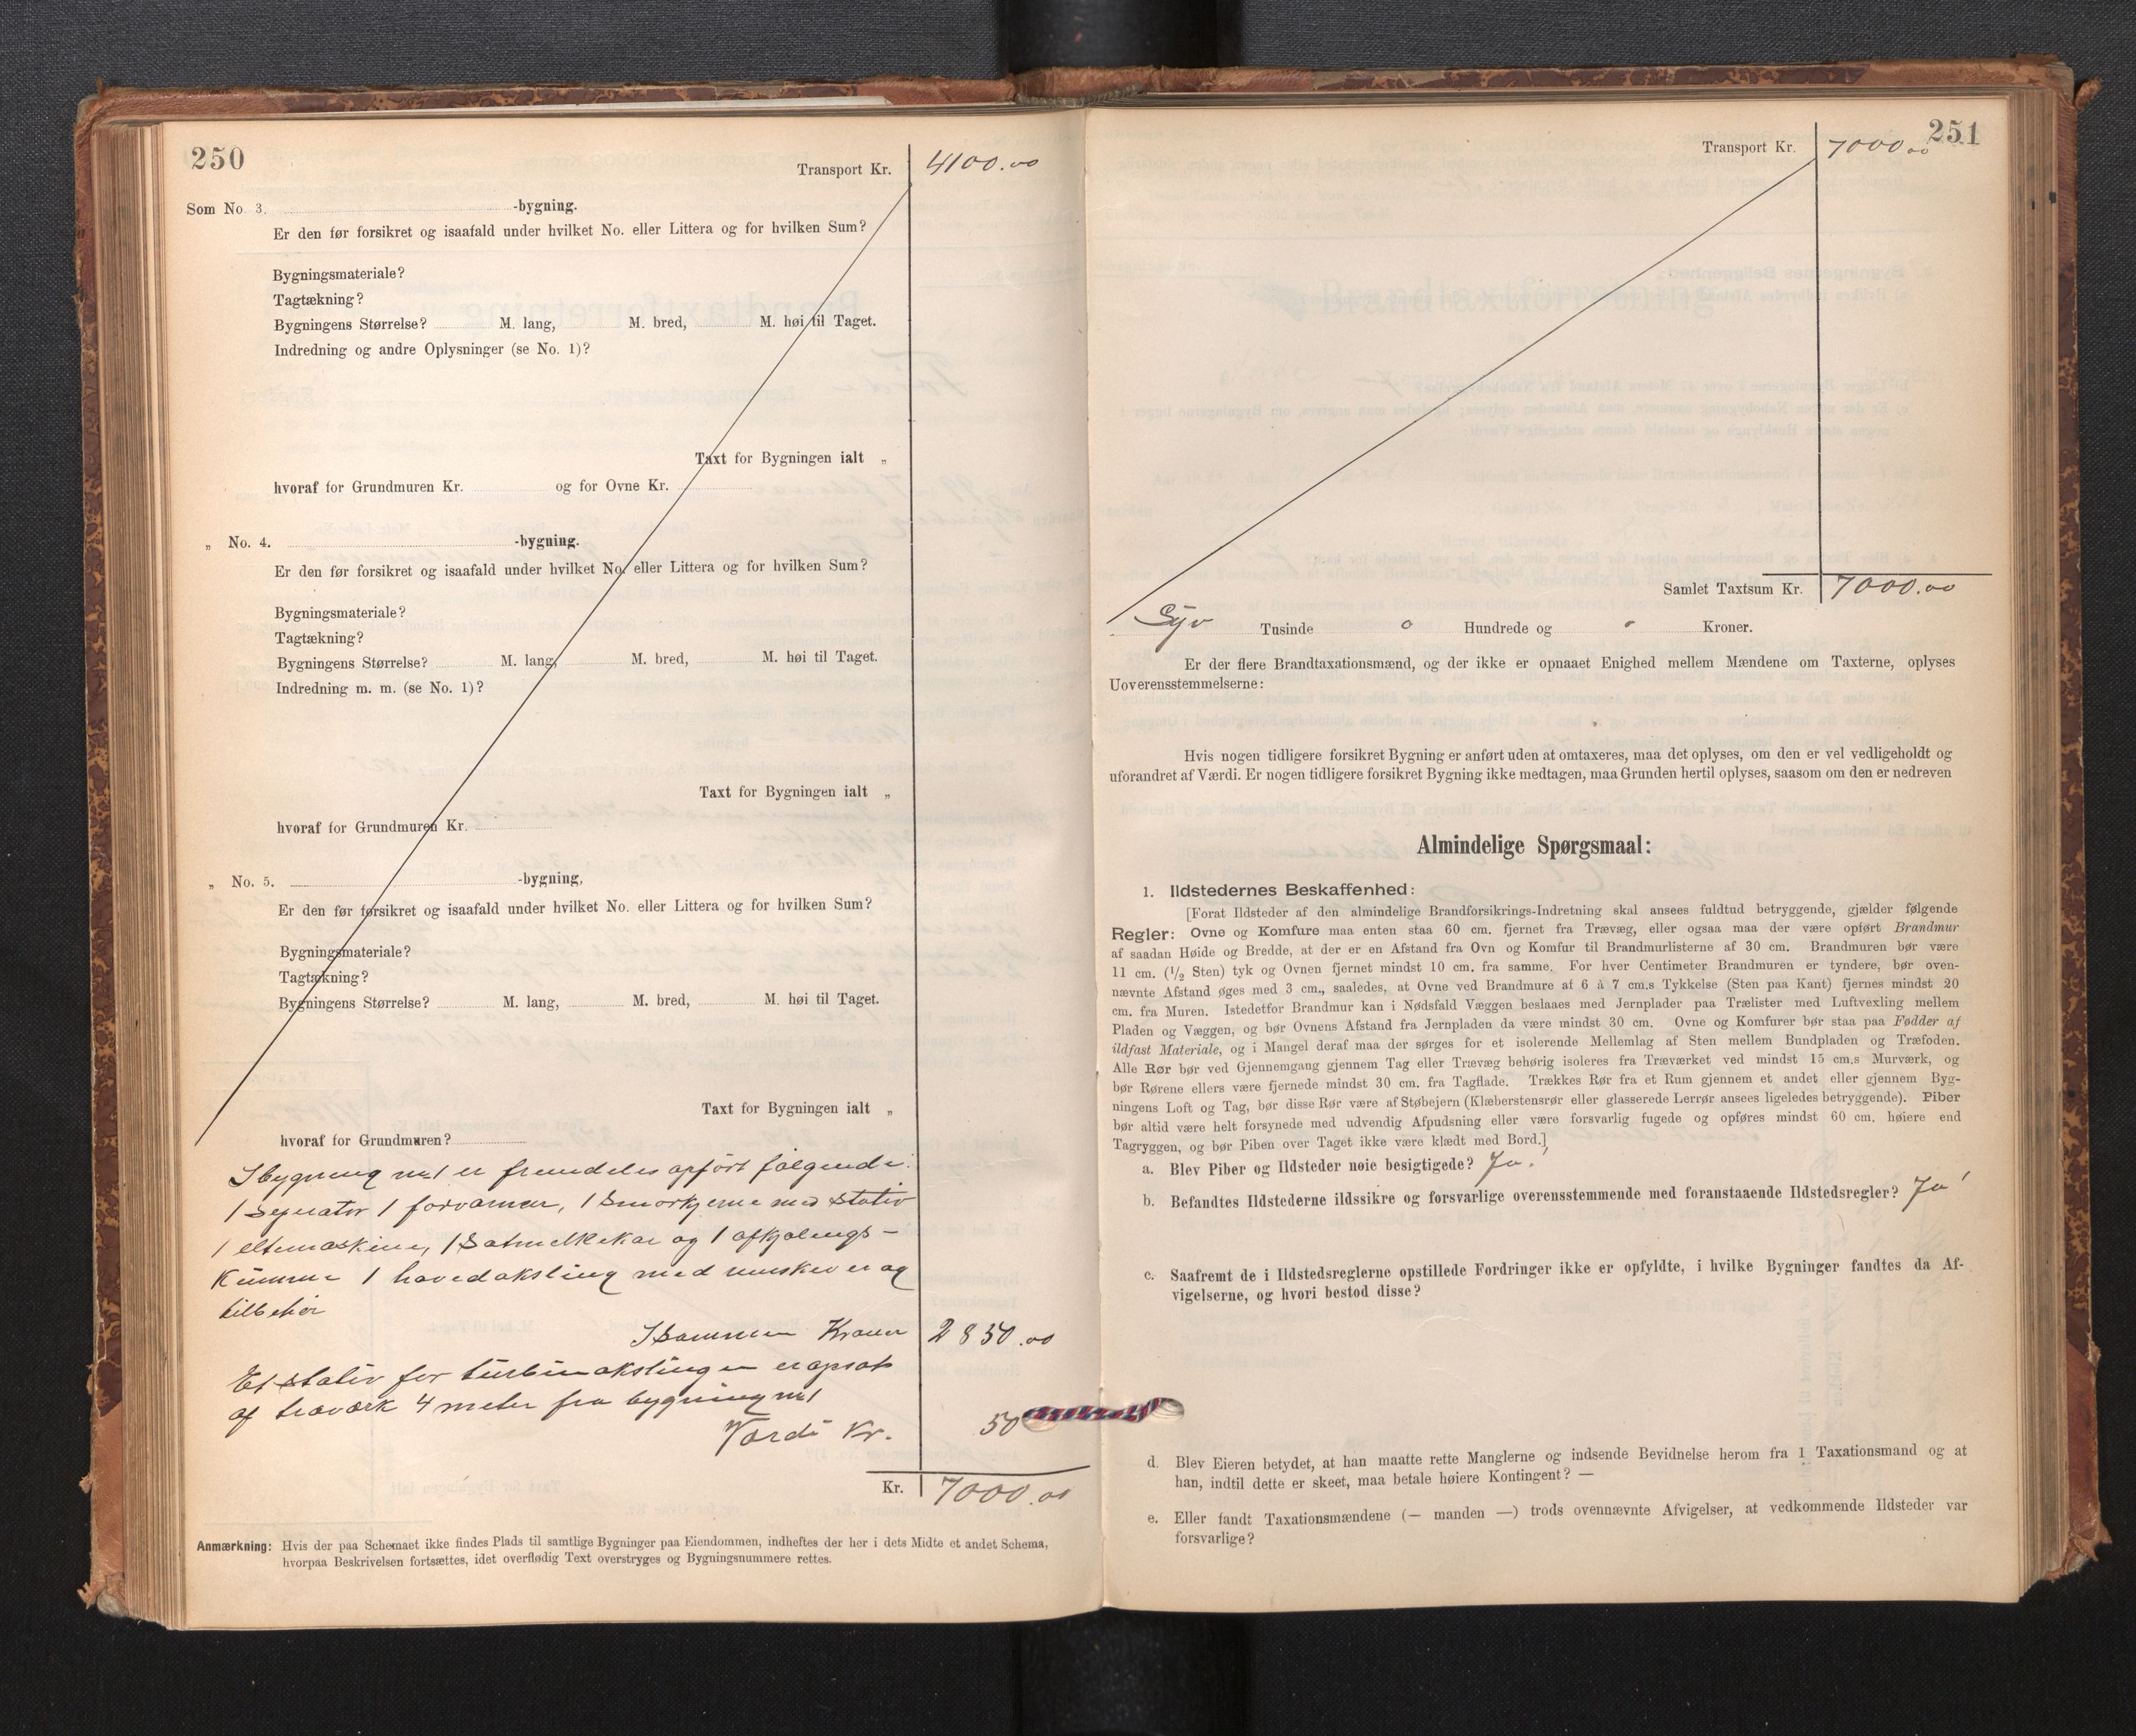 250
Transport Kr. 4100.00
Som No. 3. -bygning.
Er den før forsikret og isaafald under hvilket No. eller Littera og for hvilken Sum?
Bygningsmateriale?
Tagtækning?
Bygningens Størrelse? M. lang, M. bred, M. høi til Taget.
Indredning og andre Oplysninger (se No. 1)?
Taxt for Bygningen ialt „
hvoraf for Grundmuren Kr. og for Ovne Kr.
„ No. 4. -bygning.
Er den før forsikret og isaafald under hvilket No. eller Littera og for hvilken Sum?
Bygningsmateriale?
Tagtækning?
Bygningens Størrelse? M. lang, M. bred, M. høi til Taget.
Indredning m. m. (se No. 1)?
Taxt for Bygningen ialt „
hvoraf for Grundmuren Kr.
„ No. 5. -bygning,
Er den før forsikret og isaafald under hvilket No. eller Littera og for hvilken Sum?
Bygningsmateriale?
Tagtækning?
Bygningens Størrelse? M. lang, M. bred, M. høi til Taget.
Taxt for Bygningen ialt „
hvoraf for Grundmuren?
I bygning no 1 er fremdeles opført følgende:
1 Seperator 1 forvarmer, 1 Smørkjerne med stativ
1 eltemaskine, 1 Sødmelkekar og 1 afkjølings-
Kumme 1 hovedaksling med remskiver og
tilbehør
Isammen Kroner 2850.00
Et stativ for turbinakslingen er opsat
af træværk 4 meter fra bygning no 1
Værdi Kr. 50
Kr. 7000.00
Anmærkning: Hvis der paa Schemaet ikke findes Plads til samtlige Bygninger paa Eiendommen, indheftes der her i dets Midte et andet Schema,
hvorpaa Beskrivelsen fortsættes, idet overflødig Text overstryges og Bygningsnummere rettes.
251
Transport Kr. 7000.00
Samlet Taxtsum Kr. 7000.00
Syv Tusinde 0 Hundrede og Kroner.
Er der flere Brandtaxationsmænd, og der ikke er opnaaet Enighed mellem Mændene om Taxterne, oplyses
Uoverensstemmelserne:
Hvis nogen tidligere forsikret Bygning er anført uden at omtaxeres, maa det oplyses, om den er vel vedligeholdt og
uforandret af Værdi. Er nogen tidligere forsikret Bygning ikke medtagen, maa Grunden hertil oplyses, saasom om den er nedreven
Almindelige Spørgsmaal:
1. Ildstedernes Beskaffenhed:
[Forat Ildsteder af den almindelige Brandforsikrings-Indretning skal ansees fuldtud betryggende, gjælder følgende
Regler: Ovne og Komfure maa enten staa 60 cm. fjernet fra Trævæg, eller ogsaa maa der være opført Brandmur
af saadan Høide og Bredde, at der er en Afstand fra Ovn og Komfur til Brandmurlisterne af 30 cm. Brandmuren bør være
11 cm. (1/2 Sten) tyk og Ovnen fjernet mindst 10 cm. fra samme. For hver Centimeter Brandmuren er tyndere, bør oven-
nævnte Afstand øges med 3 cm., saaledes, at Ovne ved Brandmure af 6 à 7 cm.s Tykkelse (Sten paa Kant) fjernes mindst 20
cm. fra Muren. Istedetfor Brandmur kan i Nødsfald Væggen beslaaes med Jernplader paa Trælister med Luftvexling mellem
Pladen og Væggen, og bør Ovnens Afstand fra Jernpladen da være mindst 30 cm. Ovne og Komfurer bør staa paa Fødder af
ildfast Materiale, og i Mangel deraf maa der sørges for et isolerende Mellemlag af Sten mellem Bundpladen og Træfoden.
Alle Rør bør ved Gjennemgang gjennem Tag eller Trævæg behørig isoleres fra Træværket ved mindst 15 cm.s Murværk, og
bør Rørene ellers være fjernede mindst 30 cm. fra Tagflade. Trækkes Rør fra et Rum gjennem et andet eller gjennem Byg-
ningens Loft og Tag, bør disse Rør være af Støbejern (Klæberstensrør eller glasserede Lerrør ansees ligeledes betryggende). Piber
bør altid være helt forsynede med udvendig Afpudsning eller være forsvarlig fugede og opføres mindst 60 cm. høiere end
Tagryggen, og bør Piben over Taget ikke være klædt med Bord.]
a. Blev Piber og Ildsteder nøie besigtigede? Ja!
b. Befandtes Ildstederne ildssikre og forsvarlige overensstemmende med foranstaaende Ildstedsregler? Ja!
c. Saafremt de i Ildstedsreglerne opstillede Fordringer ikke er opfyldte, i hvilke Bygninger fandtes da Af-
vigelserne, og hvori bestod disse?
d. Blev Eieren betydet, at han maatte rette Manglerne og indsende Bevidnelse herom fra 1 Taxationsmand og at
han, indtil dette er skeet, maa betale høiere Kontingent? —
e. Eller fandt Taxationsmændene (— manden —) trods ovennævnte Afvigelser, at vedkommende Ildsteder var
forsvarlige?